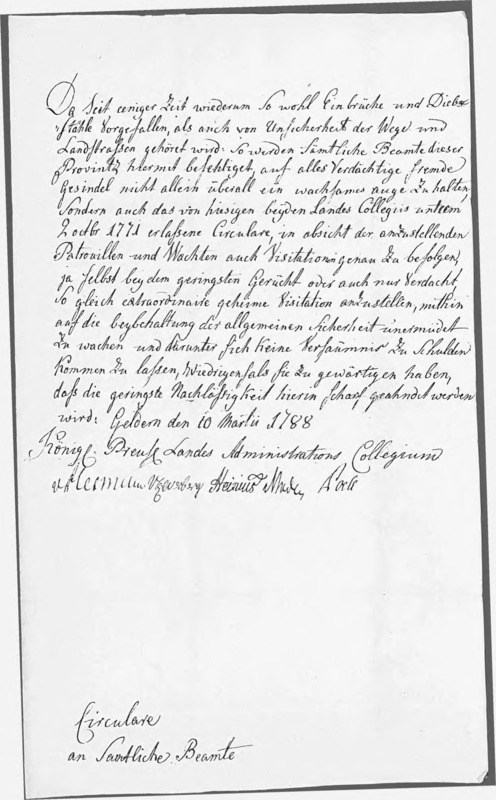 Da Seit einiger Zeit wiederum So wohl Einbrüche und Dieb-
stähle Vorgefallen, als auch von Unsicherheit der Wege und
Landstrassen gehöret wird: So werden Sämtliche Beamte dieser
Provintz hiermit befehliget, auf alles Verdächtige fremde
gesindel nicht allein überall ein wachsames auge Zu halten,
Sondern auch das von hiesigen beyden Landes Collegiis unterm
2 octbr 1771 erlassene Circulare, in absicht der anzustellenden
Patrouillen und Wachten auch Visitationen genau Zu befolgen,
ja selbst bey dem geringsten Gerücht oder auch nur Verdacht,
So gleich extraordinaire geheime Visitation anzustellen, mithin
auf die beybehaltung der allgemeinen Sicherheit unermüdet
Zu wachen und darunter sich keine Versäumnis Zu Schulden
kommen Zu lassen, Wiedrigenfals sie Zu gewärtigen haben,
dass die geringste Nachlässigkeit hierin scharf geahndet werden
wird: Geldern den 10 Martii 1788
Königl. Preuss Landes Administrations Collegium
Heinius
Circulare
an Samtliche Beamte